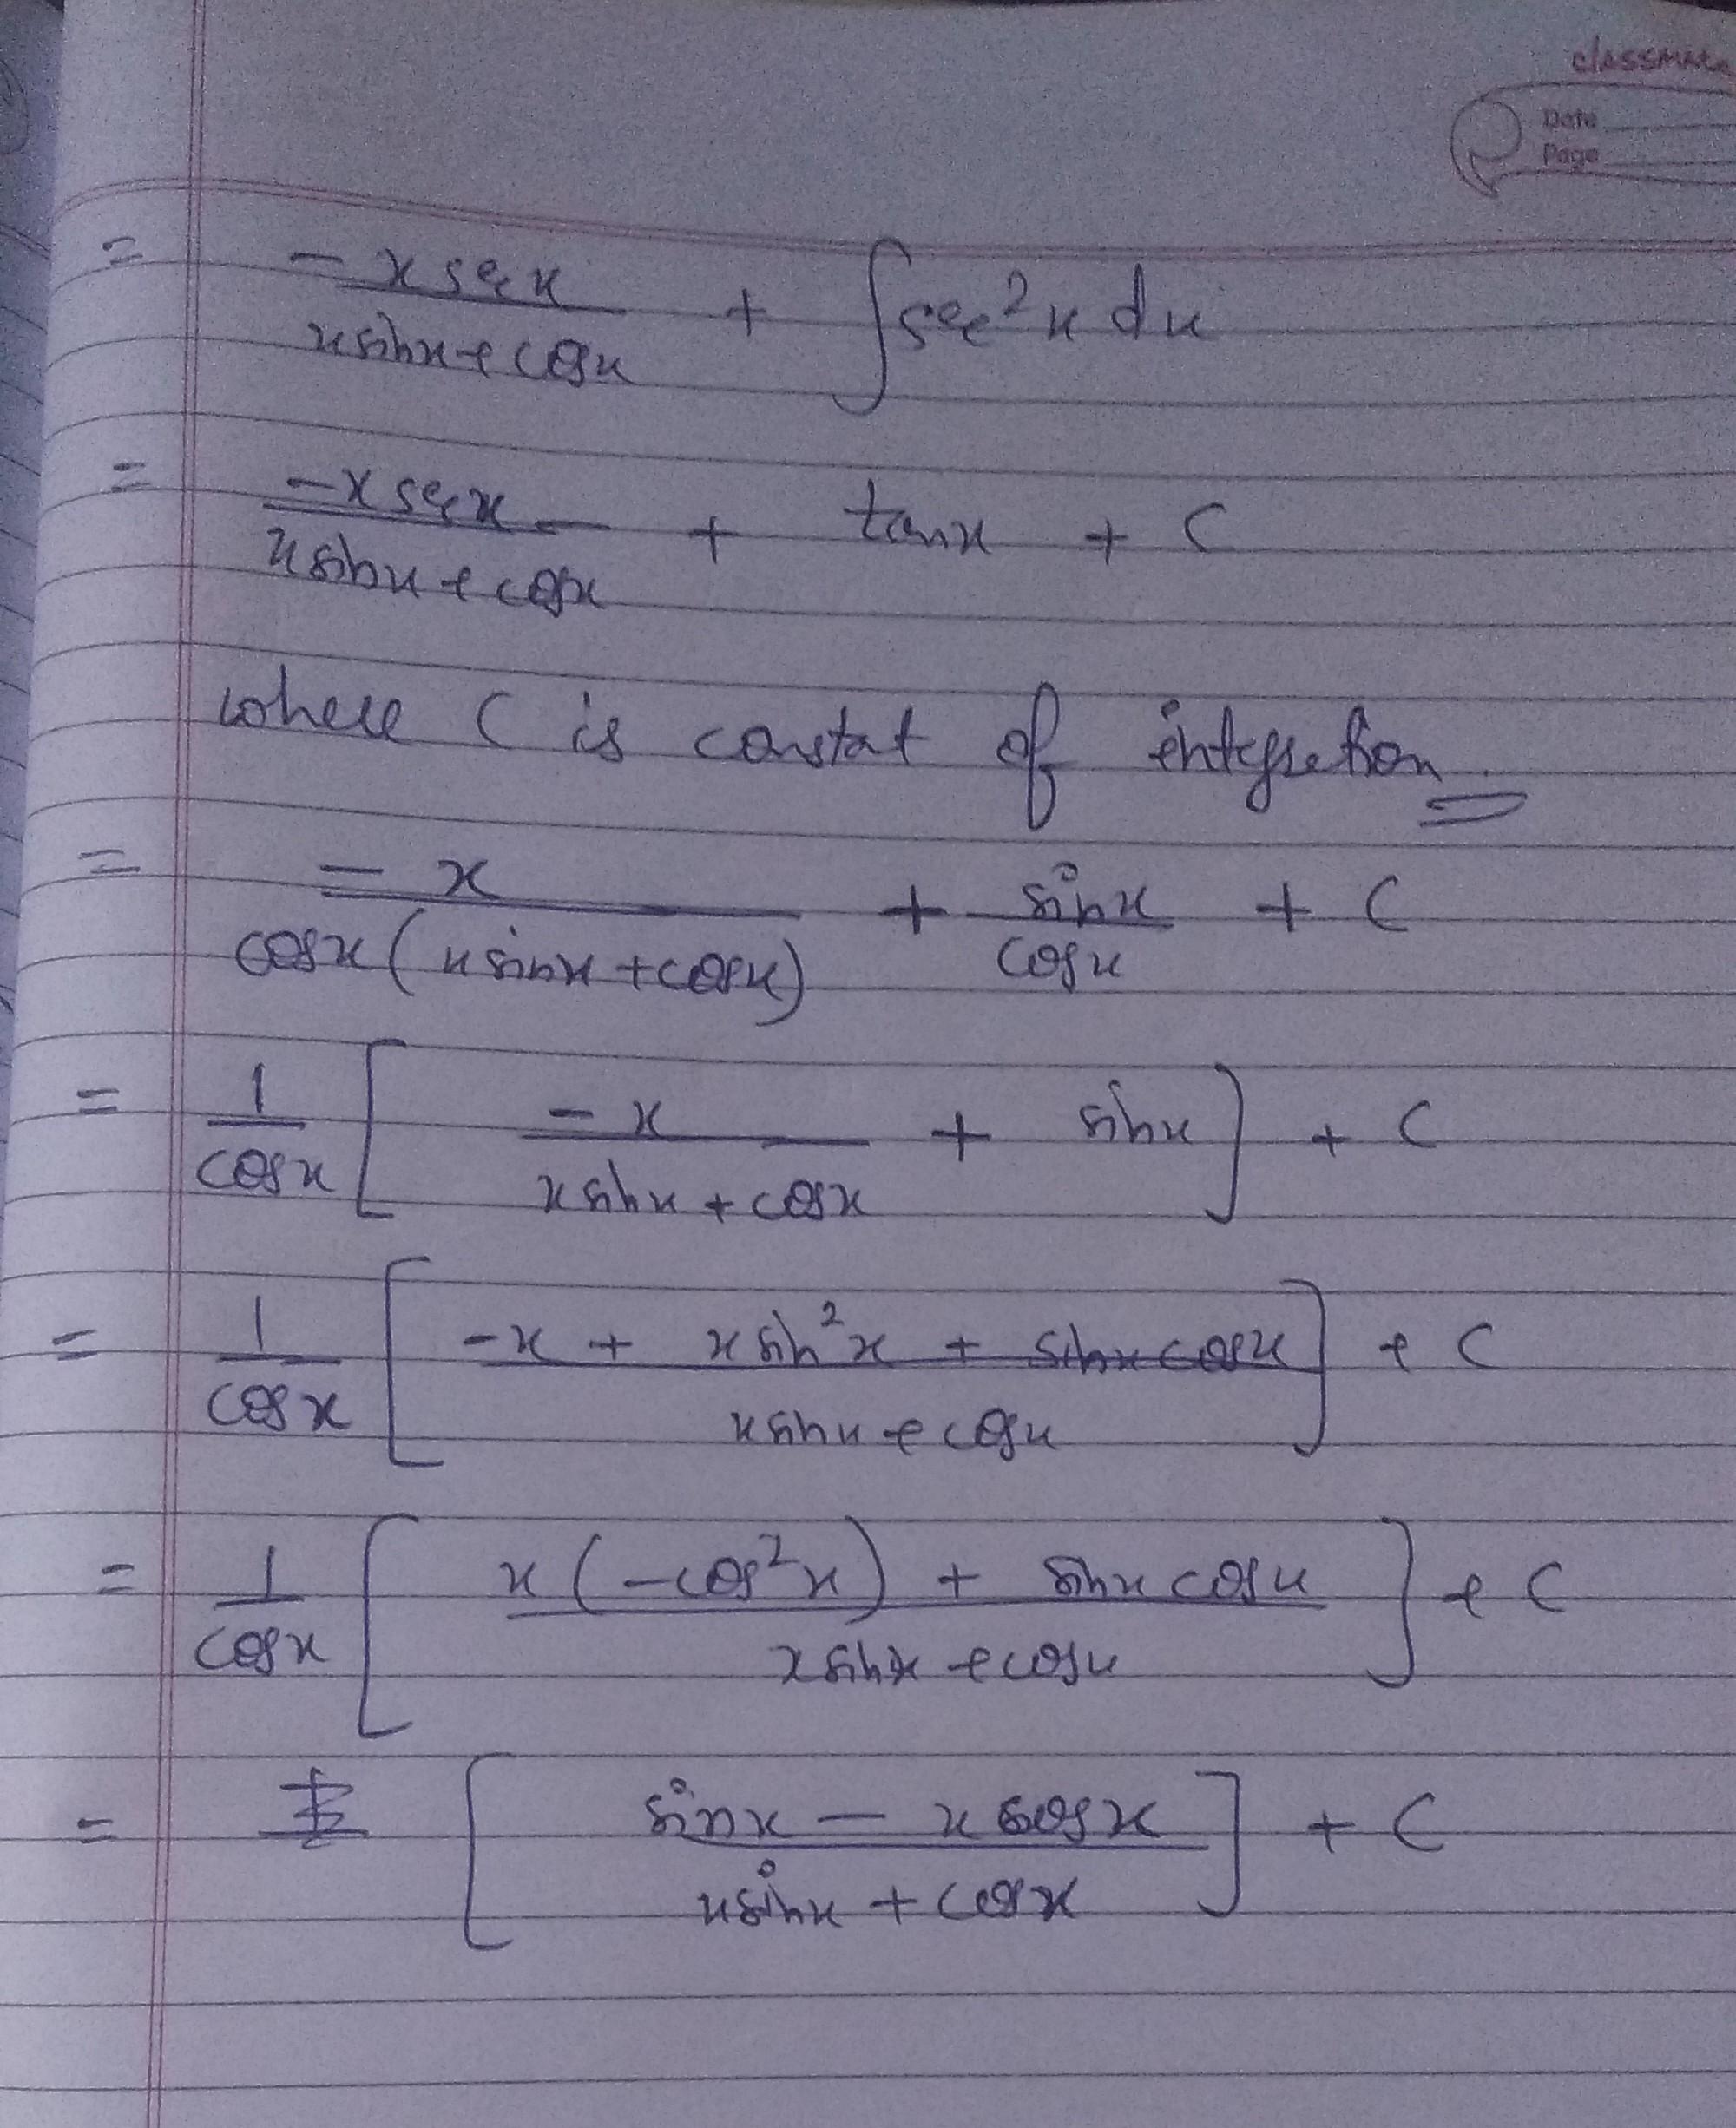 classmate
Date
Page
= -x sec x / (x sin x + cos x) + ∫ sec² x dx
= -x sec x / (x sin x + cos x) + tan x + C
where C is constat of integration
= -x / (cos x (x sin x + cos x)) + sin x / cos x + C
= 1 / cos x [ -x / (x sin x + cos x) + sin x ] + C
= 1 / cos x [ (-x + x sin² x + sin x cos x) / (x sin x + cos x) ] + C
= 1 / cos x [ (x (-cos² x) + sin x cos x) / (x sin x + cos x) ] + C
= [ (sin x - x cos x) / (x sin x + cos x) ] + C